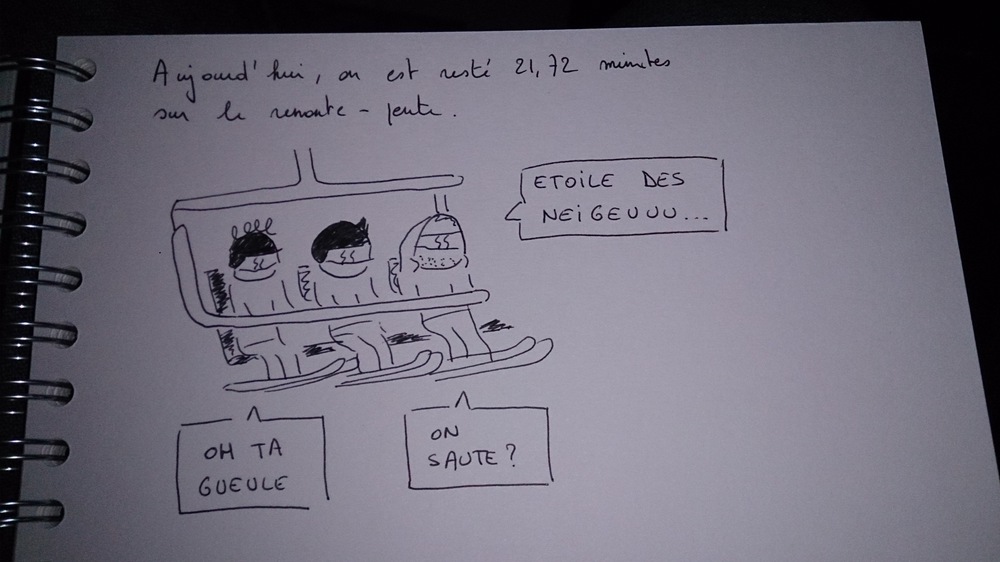 Aujourd'hui, on est resté 21,72 minutes
sur le remonte-pente.
ETOiLE DES
NEiGEUUU...
OH TA
GUEULE
ON
SAUTE?